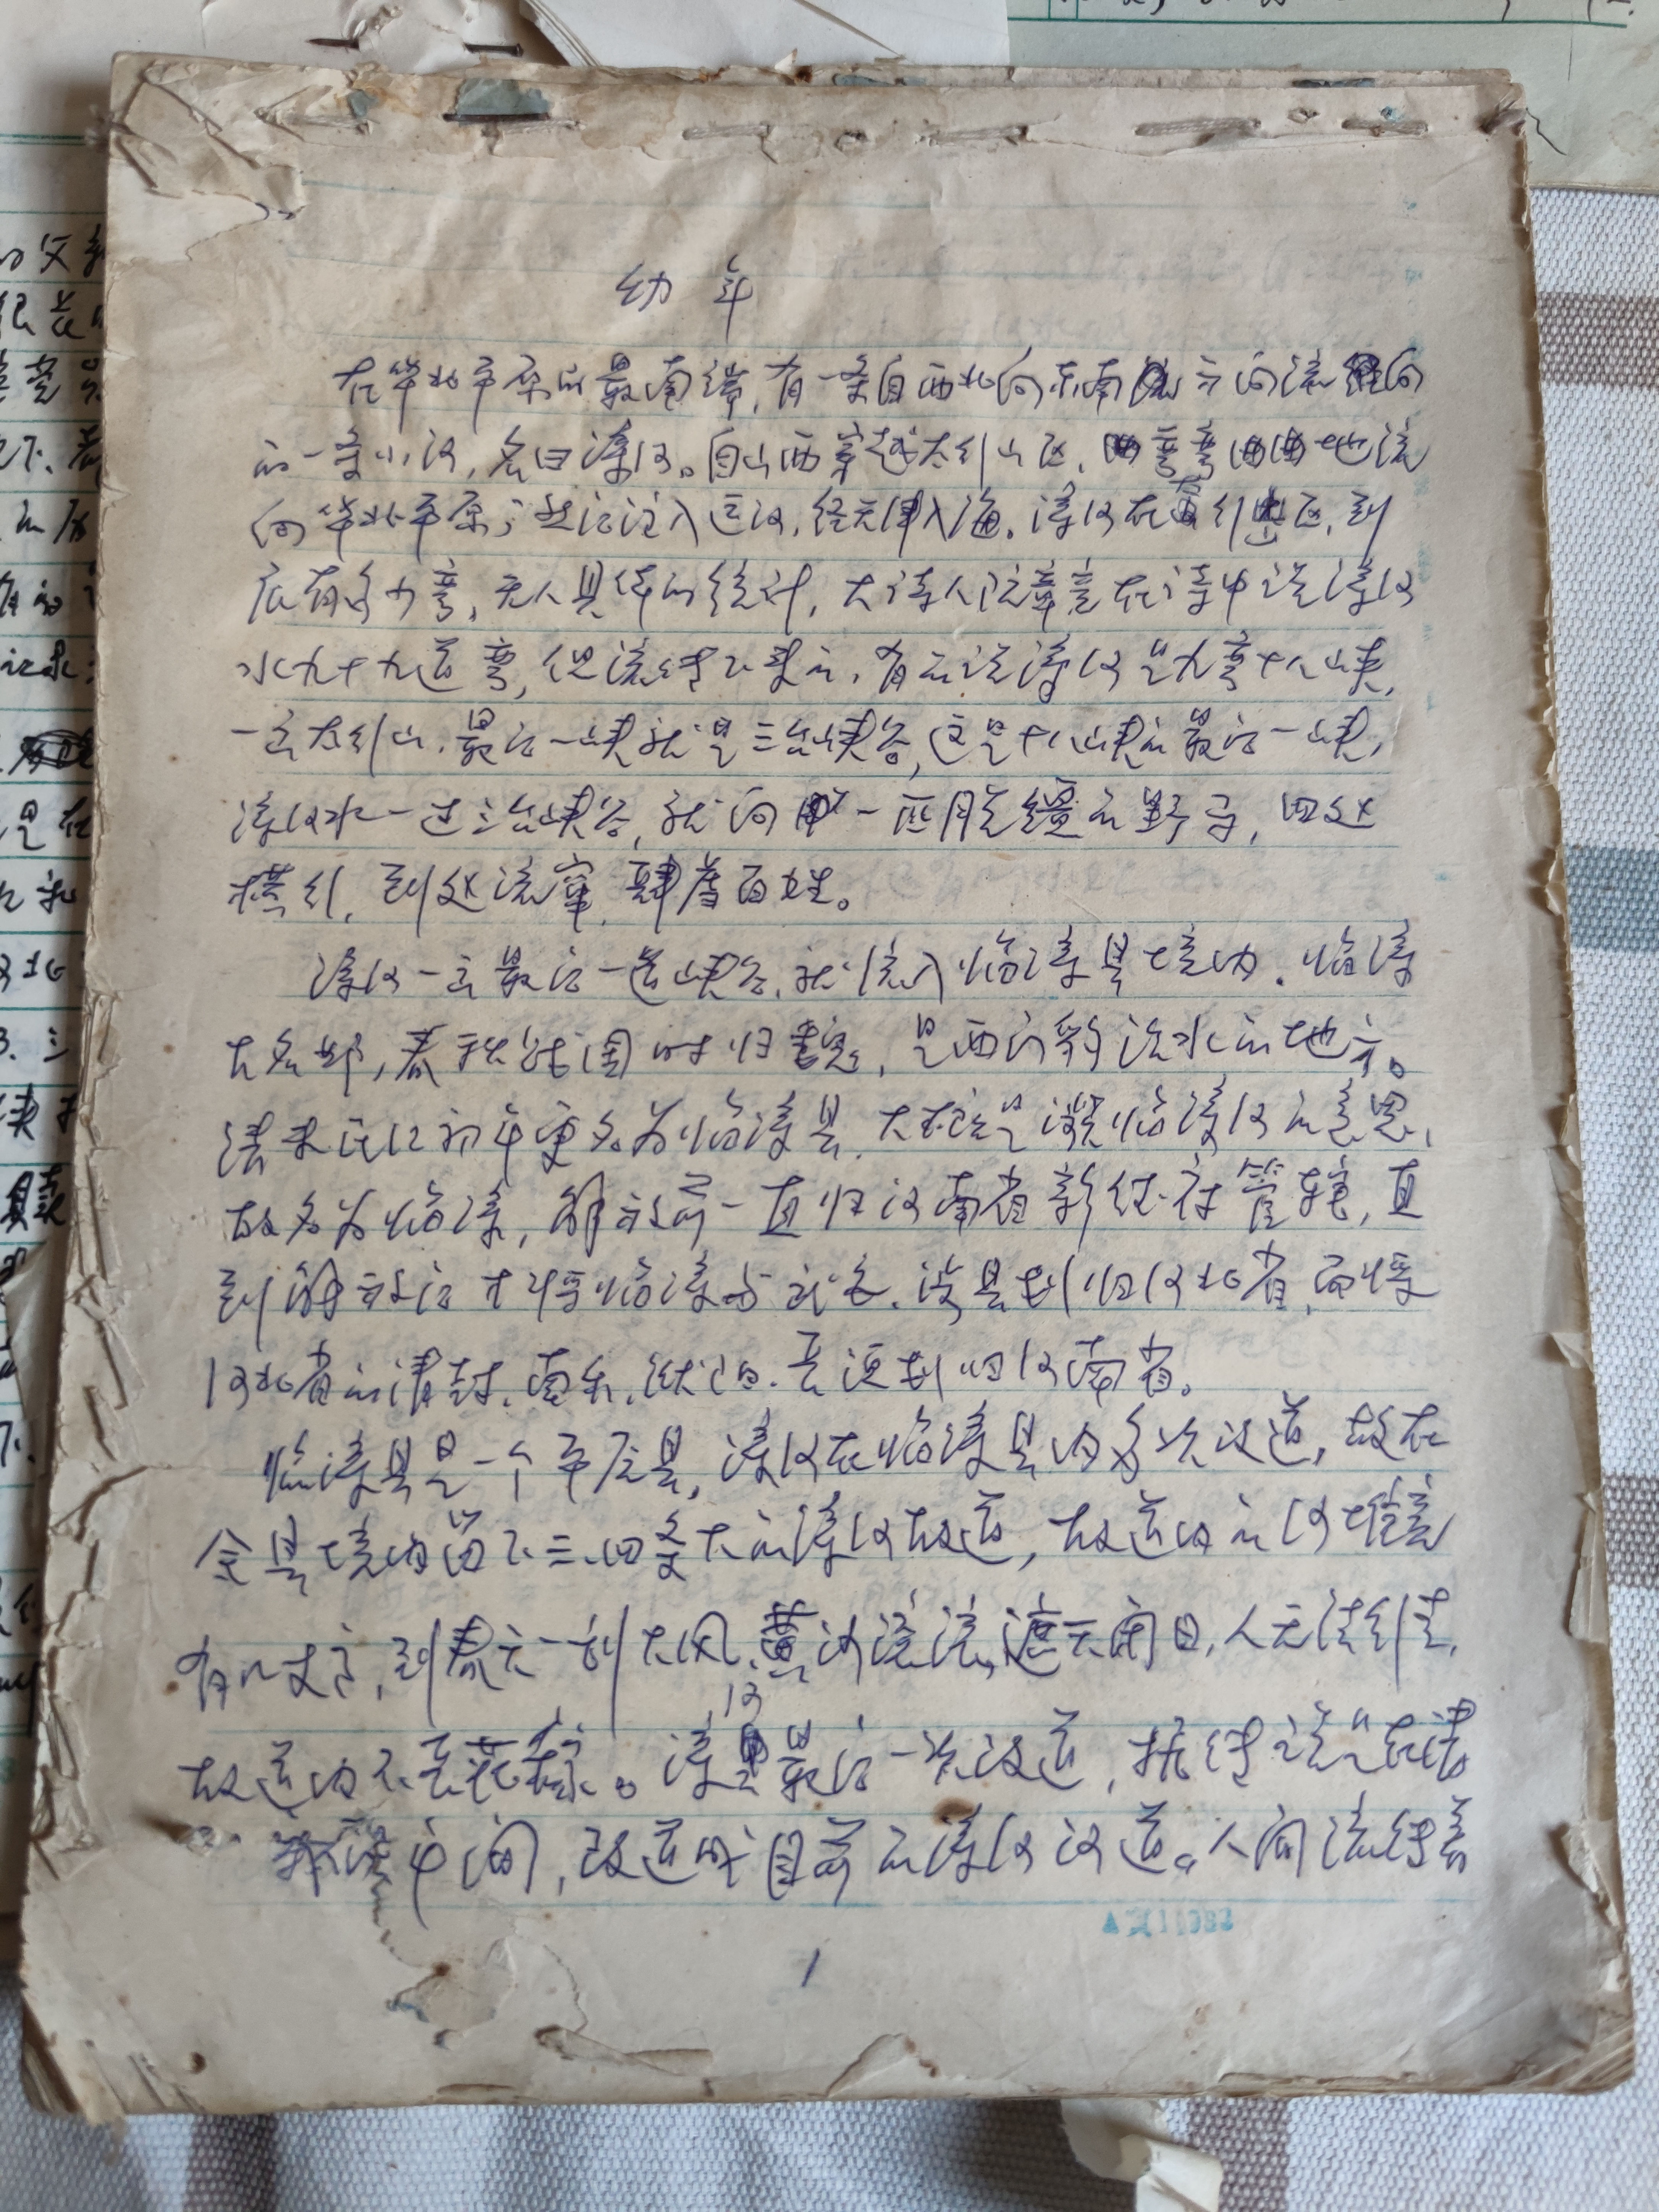 幼年
在华北平原的最南端,有一条自西北向东南方向流向
的一条小河,名曰漳河。自山西穿越太行山区,弯弯曲曲地流
向华北平原;然后注入运河,经天津入海。漳河在太行山区,到
底有多少弯,无人具体的统计,大诗人阮章竞在诗中说漳河
水九十九道弯,但流传下来的,有的说漳河是九弯十八峡,
一出太行山,最后一峡就是三台峡谷,这是十八峡的最后一峡,
漳河水一过三台峡谷,就向一匹脱缰的野马,四处
横行,到处流窜,肆虐百姓。
漳河一出最后一道峡谷,就流入临漳县境内。临漳
古名邺,春秋战国时归魏,是西门豹治水的地方。
清末民国初年更名为临漳县,大概是濒临漳河的意思,
故名为临漳,解放前一直归河南省新乡府管辖,直
到解放后才将临漳与武安、涉县划归河北省,而将
河北省的清封、南乐、濮阳、长垣划归河南省。
临漳县是一个平原县,漳河在临漳县内多次改道,故在
全县境内留下三、四条大的漳河故道,故道内的河堆高
有八丈高,到春天一刮大风,黄沙滚滚,遮天闭日,人无法行走,
故道内不长花棵。漳河最后一次改道,据传说是在清
中间,改道成目前的漳河河道。人间流传着
1